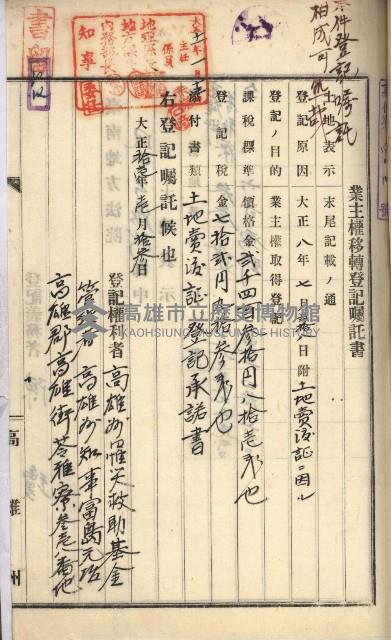 本件登記囑託
相成可然哉
業主權移轉登記囑託書
土地ノ表示 末尾記載ノ通
登記原因 大正八年七月 日附土地賣渡証ニ因ル
登記ノ目的 業主權取得登記
課稅標準 價格金貳千四百參拾円八拾壱戔也
登記稅金七拾貳円九拾參戔也
添付書類 土地賣渡証 登記承諾書
右登記囑託候也
大正拾壱年壱月拾參日
登記權利者 高雄州罹災救助基金
管理者 高雄州知事富島元治
高雄郡高雄街苓雅寮參壱八番地
高雄州
高雄市立歷史博物館
KAOHSIUNG MUSEUM OF HISTORY